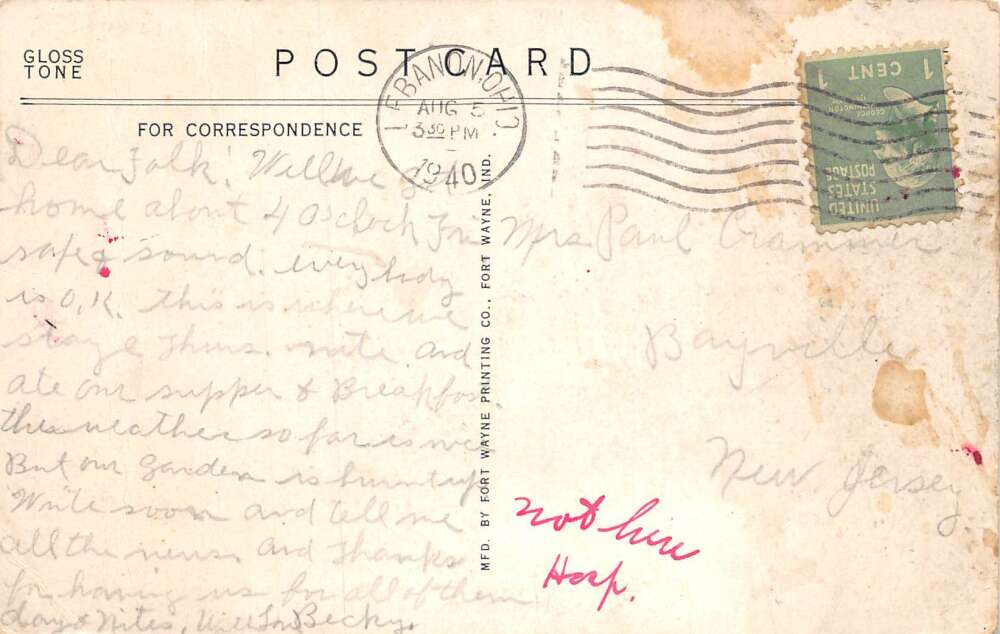 GLOSS
TONE
POST CARD
FOR CORRESPONDENCE
LEBANON, OHIO
AUG 5
3 30 PM
1940
1 CENT 1
GEORGE WASHINGTON
UNITED
STATES
POSTAGE
Dear Folk! Well we g
home about 4 O'clock Fri
safe & sound. every body
is O.K. this is where we
stayed Thurs. nite and
ate our supper & Breakfas
the weather so far is nice
But our Garden is burnt up
Write soon and tell me
all the news and Thanks
for having us for all of them
days & Nites, Becky.
MFD. BY FORT WAYNE PRINTING CO., FORT WAYNE, IND.
Mrs Paul Crammer
Bayville
New Jersey.
not here
Hosp.